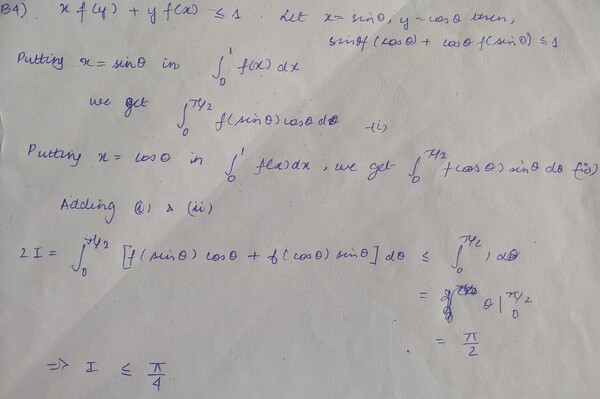 B4) x f(y) + y f(x) ≤ 1 . Let x = sinθ, y = cosθ then,
sinθ f(cosθ) + cosθ f(sinθ) ≤ 1
Putting x = sinθ in ∫₀¹ f(x) dx
we get ∫₀^{π/2} f(sinθ) cosθ dθ -(i)
Putting x = cosθ in ∫₀¹ f(x) dx , we get ∫₀^{π/2} f(cosθ) sinθ dθ (ii)
Adding (i) & (ii)
2I = ∫₀^{π/2} [f(sinθ) cosθ + f(cosθ) sinθ] dθ ≤ ∫₀^{π/2} 1 dθ
= θ|₀^{π/2}
= π/2
=> I ≤ π/4